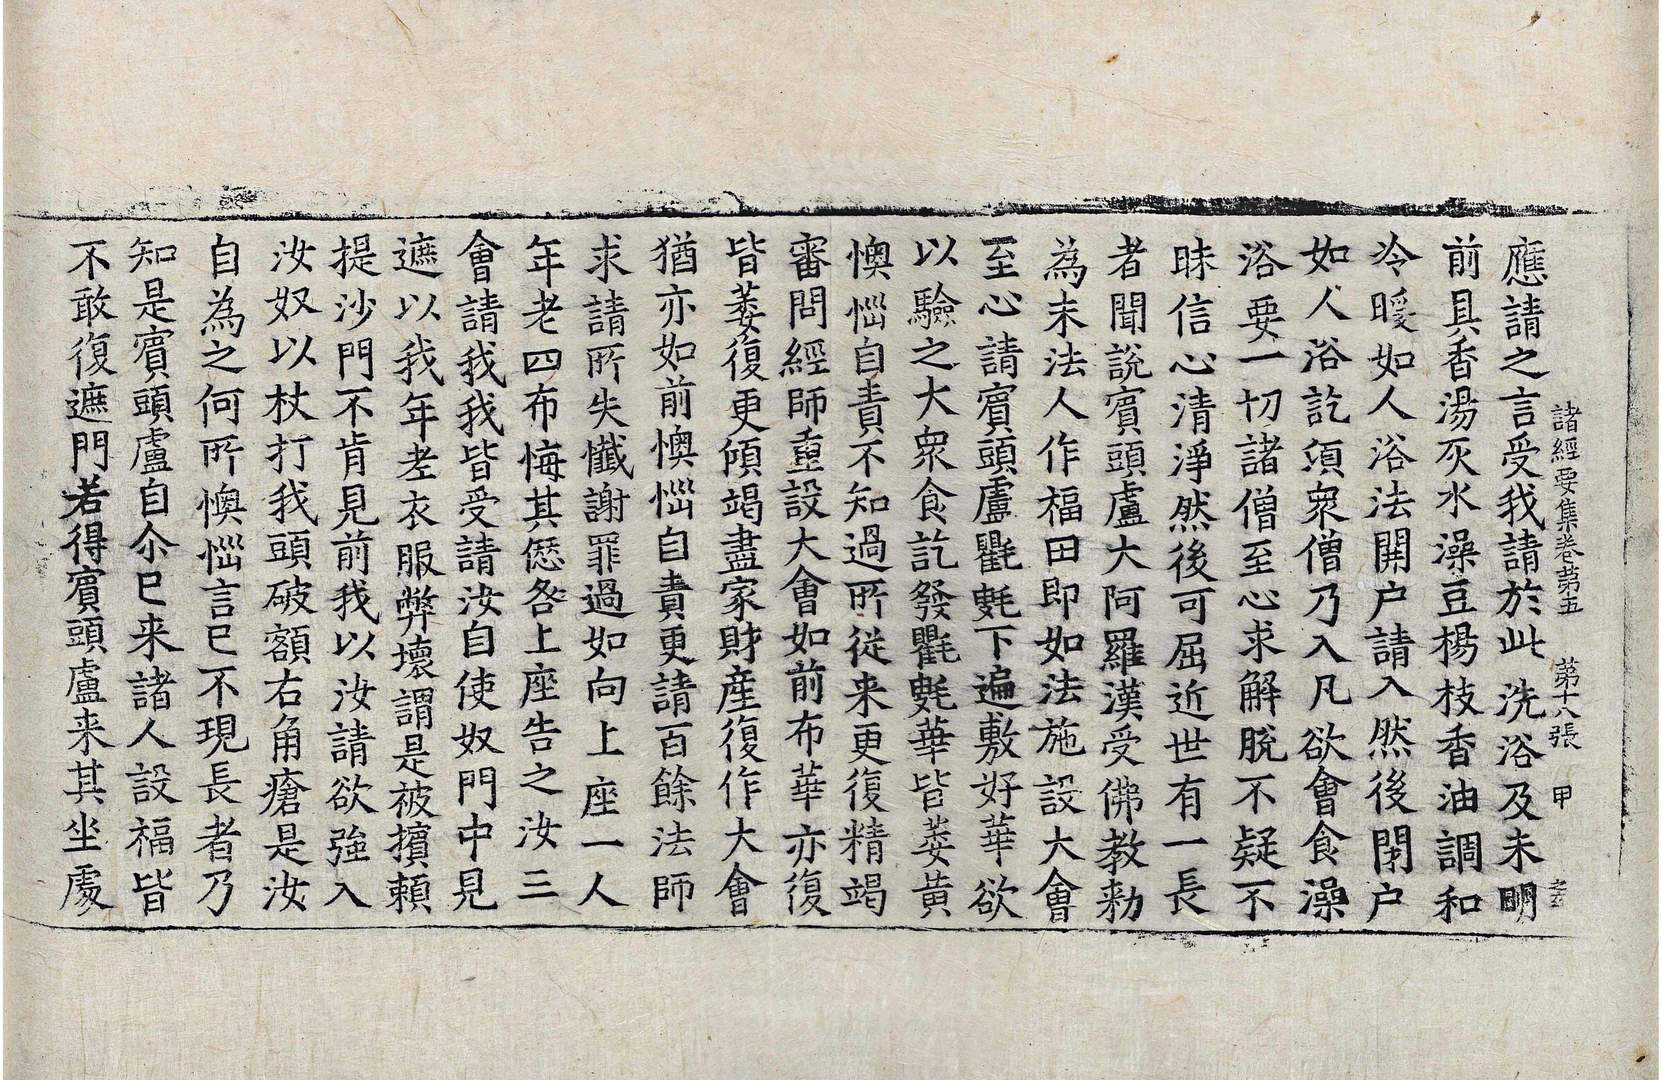 諸經要集卷第五 第十八張 甲
應請之言受我請於此洗浴及未明
前具香湯灰水澡豆楊枝香油調和
冷暖如人浴法開户請入然後閉户
如人浴訖須衆僧乃入凡欲會食澡
浴要一切諸僧至心求解脫不疑不
昧信心清淨然後可屈近世有一長
者聞說賓頭盧大阿羅漢受佛教勑
為末法人作福田即如法施設大會
至心請賓頭盧氍毹下遍敷好華欲
以驗之大衆食訖發氍毹華皆萎黃
懊惱自責不知過所從来更復精竭
審問經師重設大會如前布華亦復
皆萎復更傾竭盡家財産復作大會
猶亦如前懊惱自責更請百餘法師
求請所失懺謝罪過如向上座一人
年老四布悔其愆咎上座告之汝三
會請我我皆受請汝自使奴門中見
遮以我年老衣服弊壞謂是被擯賴
提沙門不肯見前我以汝請欲強入
汝奴以杖打我頭破額右角瘡是汝
自為之何所懊惱言已不現長者乃
知是賓頭盧自尒已来諸人設福皆
不敢復遮門若得賓頭盧来其坐處